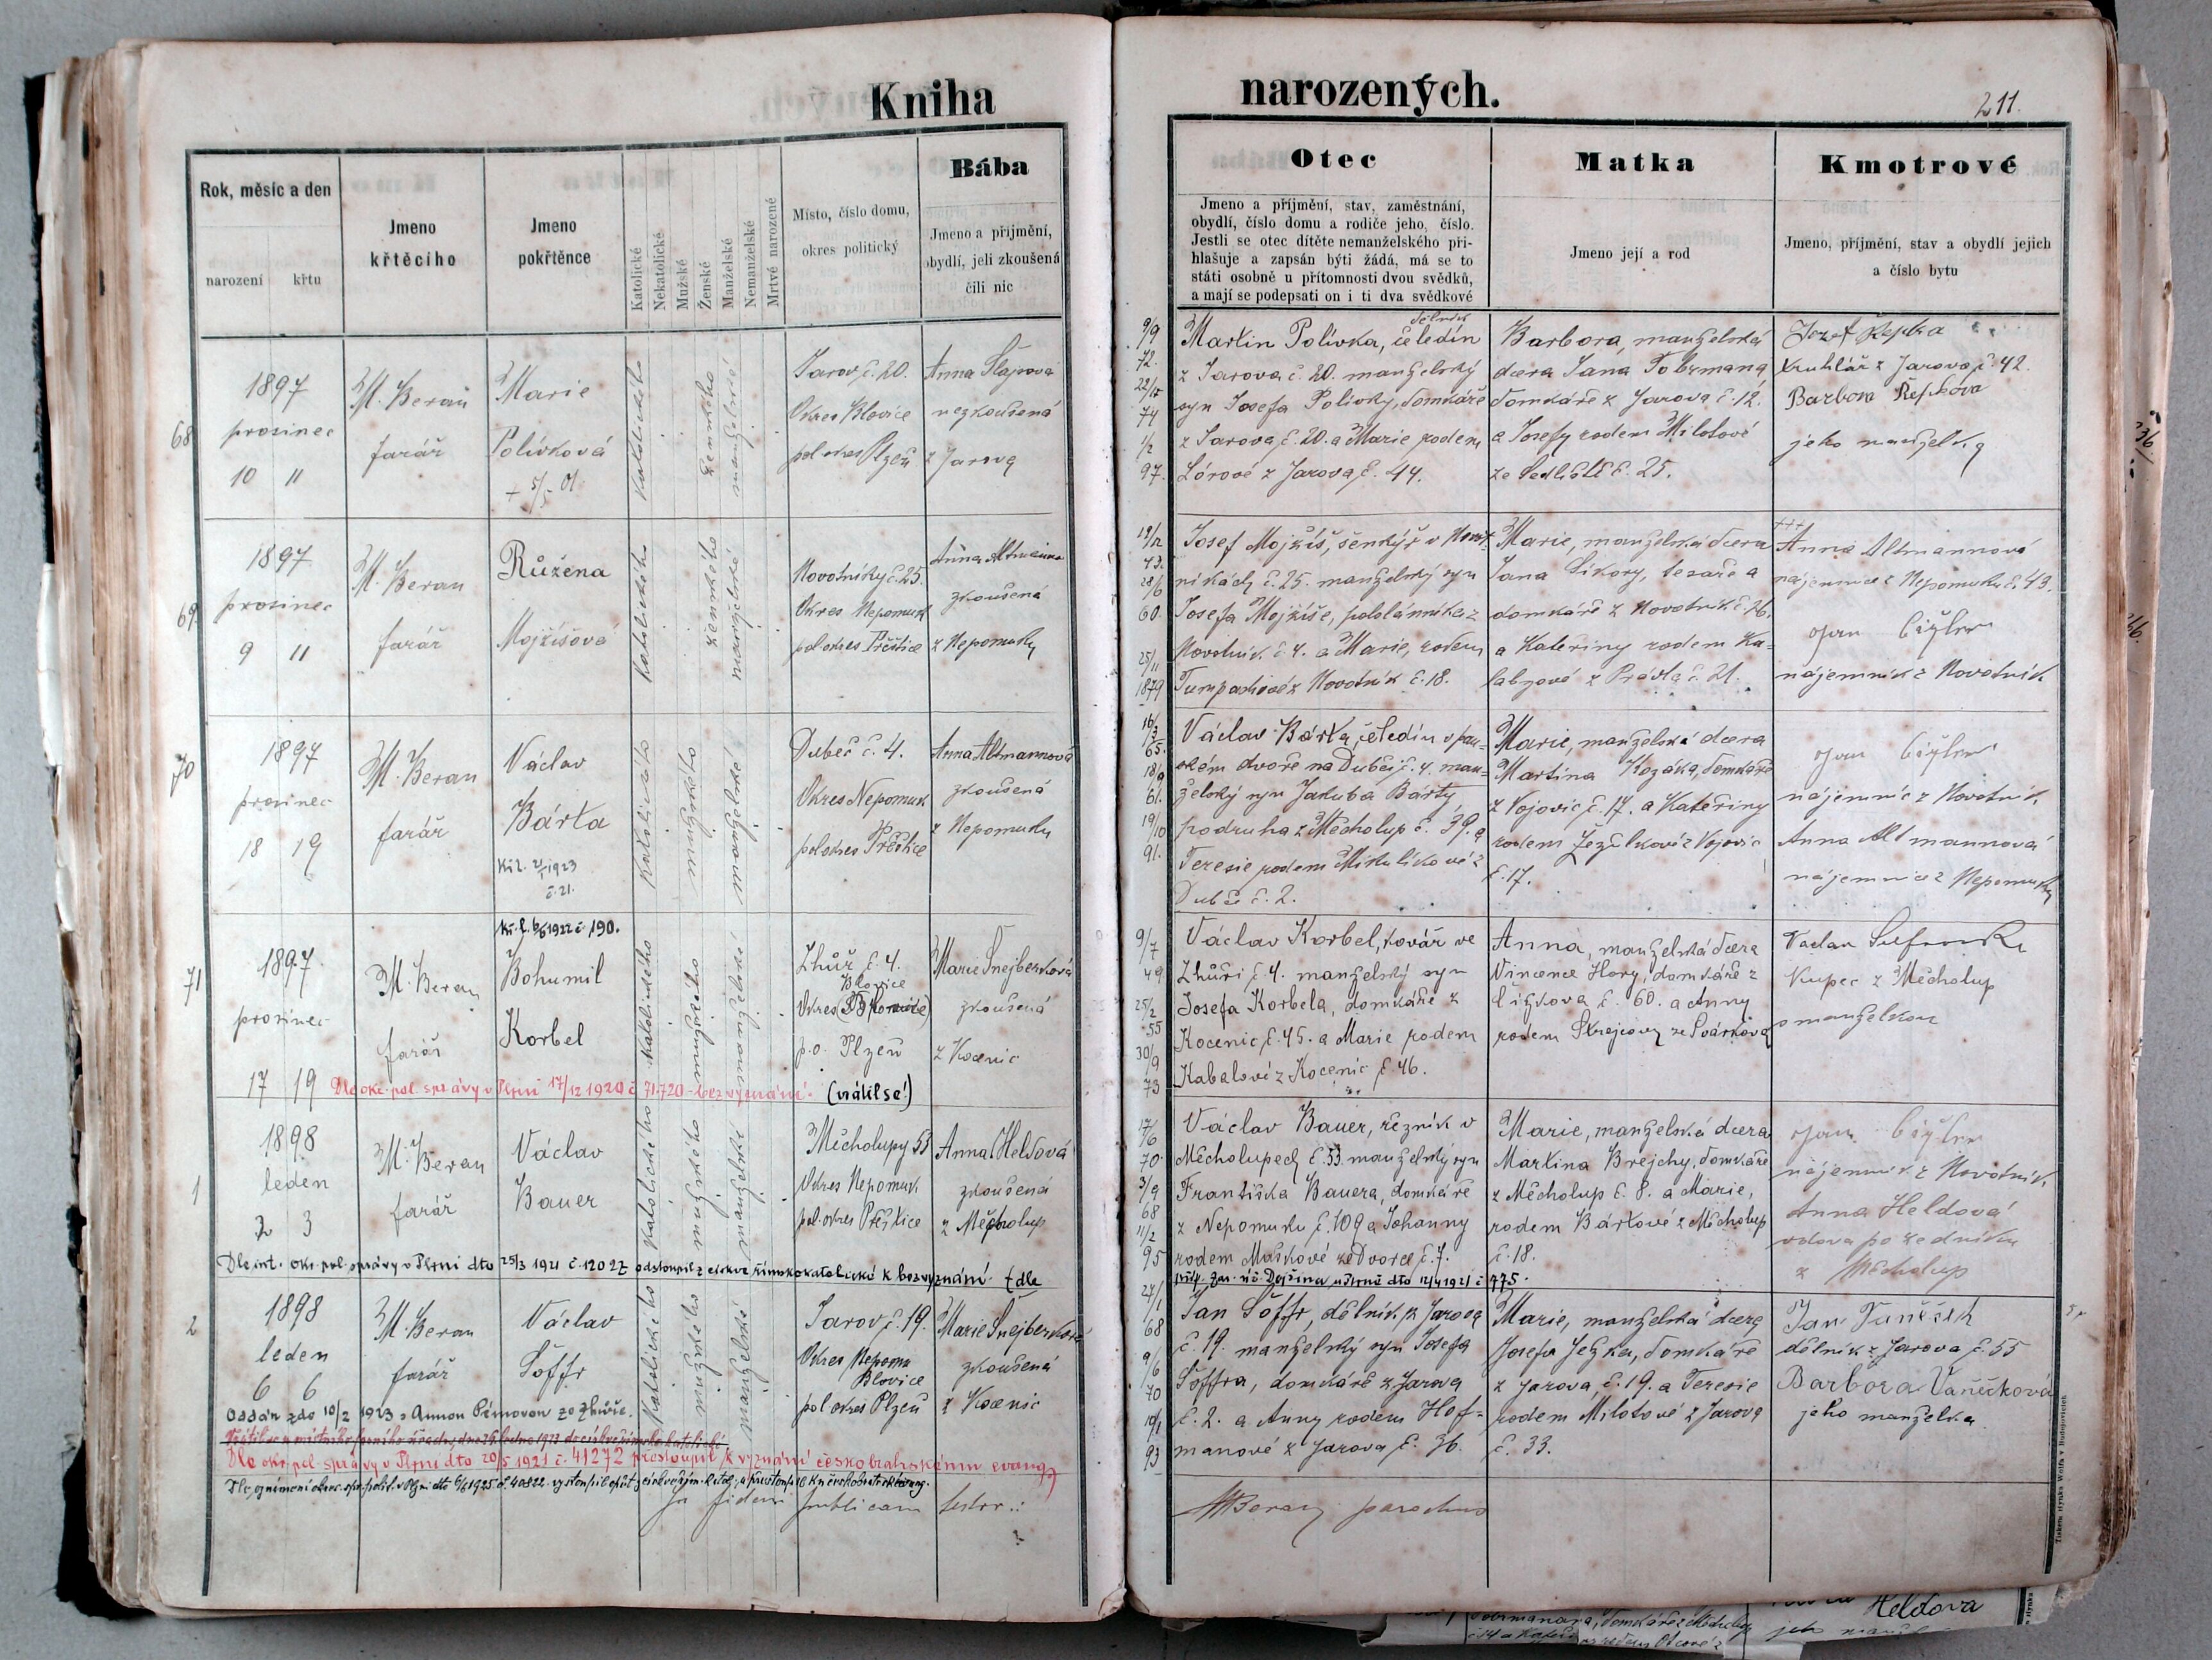 Kniha
narozených.
211.
Rok, měsíc a den
narození
křtu
Jmeno
křtěcího
Jmeno
pokřtěnce
Katolické
Nekatolické
Mužské
Ženské
Manželské
Nemanželské
Mrtvě narozené
Místo, číslo domu,
okres politický
Bába
Jmeno a přijmění,
obydlí, jeli zkoušená
čili nic
Otec
Jmeno a příjmění, stav, zaměstnání,
obydlí, číslo domu a rodiče jeho, číslo.
Jestli se otec dítěte nemanželského při-
hlašuje a zapsán býti žádá, má se to
státi osobně u přítomnosti dvou svědků,
a mají se podepsati on i ti dva svědkové
Matka
Jmeno její a rod
Kmotrové
Jmeno, příjmění, stav a obydlí jejich
a číslo bytu
68
1897
prosinec
10 11
M. Beran
farář
Marie
Polívková
+ 5/5 01
katolického
ženského
manželské
Jarov č. 20.
Okres Blovice
pol okres Plzeň
Anna Šlajsová
nezkoušená
z Jarova
9/9
72.
22/12
74
1/2
97.
dělník
Martin Polívka, čeledín
z Jarova č. 20. manželský
syn Josefa Polívky, domkáře
z Jarova č. 20. a Marie rodem
Lórové z Jarova č. 44.
Barbora, manželská
dcera Jana Tobrmana
domkáře z Jarova č. 12.
a Josefy rodem Milotové
ze Sedliště č. 25.
Josef Řepka
truhlář z Jarova č 42.
Barbora Řepková
jeho manželka
69.
1897
prosinec
9 11
M. Beran
farář
Růžena
Mojžíšová
katolického
ženského
manželské
Novotníky č. 25.
Okres Nepomuk
pol okres Přeštice
Anna Altmannová
zkoušená
z Nepomuku
19/12
73.
28/6
60.
25/11
1879
Josef Mojžíš, šenkýř v Novot-
níkách č. 25. manželský syn
Josefa Mojžíše, pololánníka z
Novotník č. 4. a Marie, rodem
Tumpachové z Novotník č. 18.
Marie, manželská dcera
Jana Sikory, tesaře a
domkáře z Novotník č. 26.
a Kateřiny rodem Ka-
labzové z Prádla č. 21.
+++
Anna Altmannová
nájemnice z Nepomuku č. 43.
Jan
nájemník z Novotník
70
1897
prosinec
18 19
M. Beran
farář
Václav
Bárta
č. 21.
katolického
mužského
manželské
Dubeč č. 4.
Okres Nepomuk
pol okres Přeštice
Anna Altmannová
zkoušená
z Nepomuku
16/3
65.
18/9
61.
19/10
91.
Václav Bárta, čeledín v pan-
ském dvoře na Dubči č. 4. man-
želský syn Jakuba Bárty
podruha z Měcholup č. 39. a
Teresie rodem Mikulíkové z
Dubče č. 2.
Marie, manželská dcera
Martina Kozáka, domkáře
z Vojovic č. 17. a Kateřiny
rodem Žežulkové z Vojovic
č. 17.
Jan
nájemník z Novotník
Anna Altmannová
nájemnice z Nepomuku
71
1897
prosinec
17 19
M. Beran
farář
č. 190.
Bohumil
Korbel
katolického
mužského
manželské
Zhůř č. 4.
Blovice
Okres
p. o. Plzeň
Marie Šnejberková
zkoušená
z Kocenic
Dle okr. pol. správy v Plzni 17/12 1920 č 71.720 - bez vyznání. (vrátil se!)
9/7
49
25/2
55
30/9
73
Václav Korbel, kovář ve
Zhůři č. 4. manželský syn
Josefa Korbela, domkáře z
Kocenic č. 45. a Marie rodem
Kabalové z Kocenic č. 46.
Anna, manželská dcera
Vincence Hory, domkáře z
Čižkova č. 60. a Anny
rodem Skrejcovy ze Svárkova
Václav
Kupec z Měcholup
s manželkou
1
1898
leden
2 3
M. Beran
farář
Václav
Bauer
katolického
mužského
manželské
Měcholupy 53
Okres Nepomuk
pol. okres Přeštice
Anna Heldová
zkoušená
z Měcholup
17/6
70.
3/9
68
11/2
95
Václav Bauer, řezník v
Měcholupech č. 53. manželský syn
Františka Bauera, domkáře
z Nepomuku č. 109 a Johanny
rodem Maškové ze Dvorce č. 7.
Marie, manželská dcera
Martina Brejchy, domkáře
z Měcholup č. 8. a Marie,
rodem Bártové z Měcholup
č. 18.
Jan
nájemník z Novotník
Anna Heldová
vdova po zedníku
z Měcholup
Dle int. okr. pol. správy v Plzni dto 25/3 1921 č. 12027 odstoupil z církve římskokatolické k bezvyznání. (dle
dto 12/4 1921 č 775.
2
1898
leden
6 6
M. Beran
farář
Václav
Šöffr
katolického
mužského
manželské
Jarov č. 19.
Okres Nepomu
Blovice
pol okres Plzeň
Marie Šnejberková
zkoušená
z Kocenic
24/1
68
9/6
70
10/1
93
Jan Šöffr, dělník z Jarova
č. 19. manželský syn Josefa
Šöffra, domkáře z Jarova
č. 2. a Anny rodem Hof-
manové z Jarova č. 36.
Marie, manželská dcera
Josefa Ježka, domkáře
z Jarova č. 19. a Teresie
rodem Milotové z Jarova
č. 33.
Jan Vaněček
dělník z Jarova č. 55
Barbora Vaněčková
jeho manželka
Oddán zde 10/2 1923 s Annou ze Zhůře.
Dle okr. pol. správy v Plzni dto 20/5 1921 č. 41272 přestoupil k vyznání českobratrskému evang.
In fidem publicam testor:
M Beran parochus
Heldová